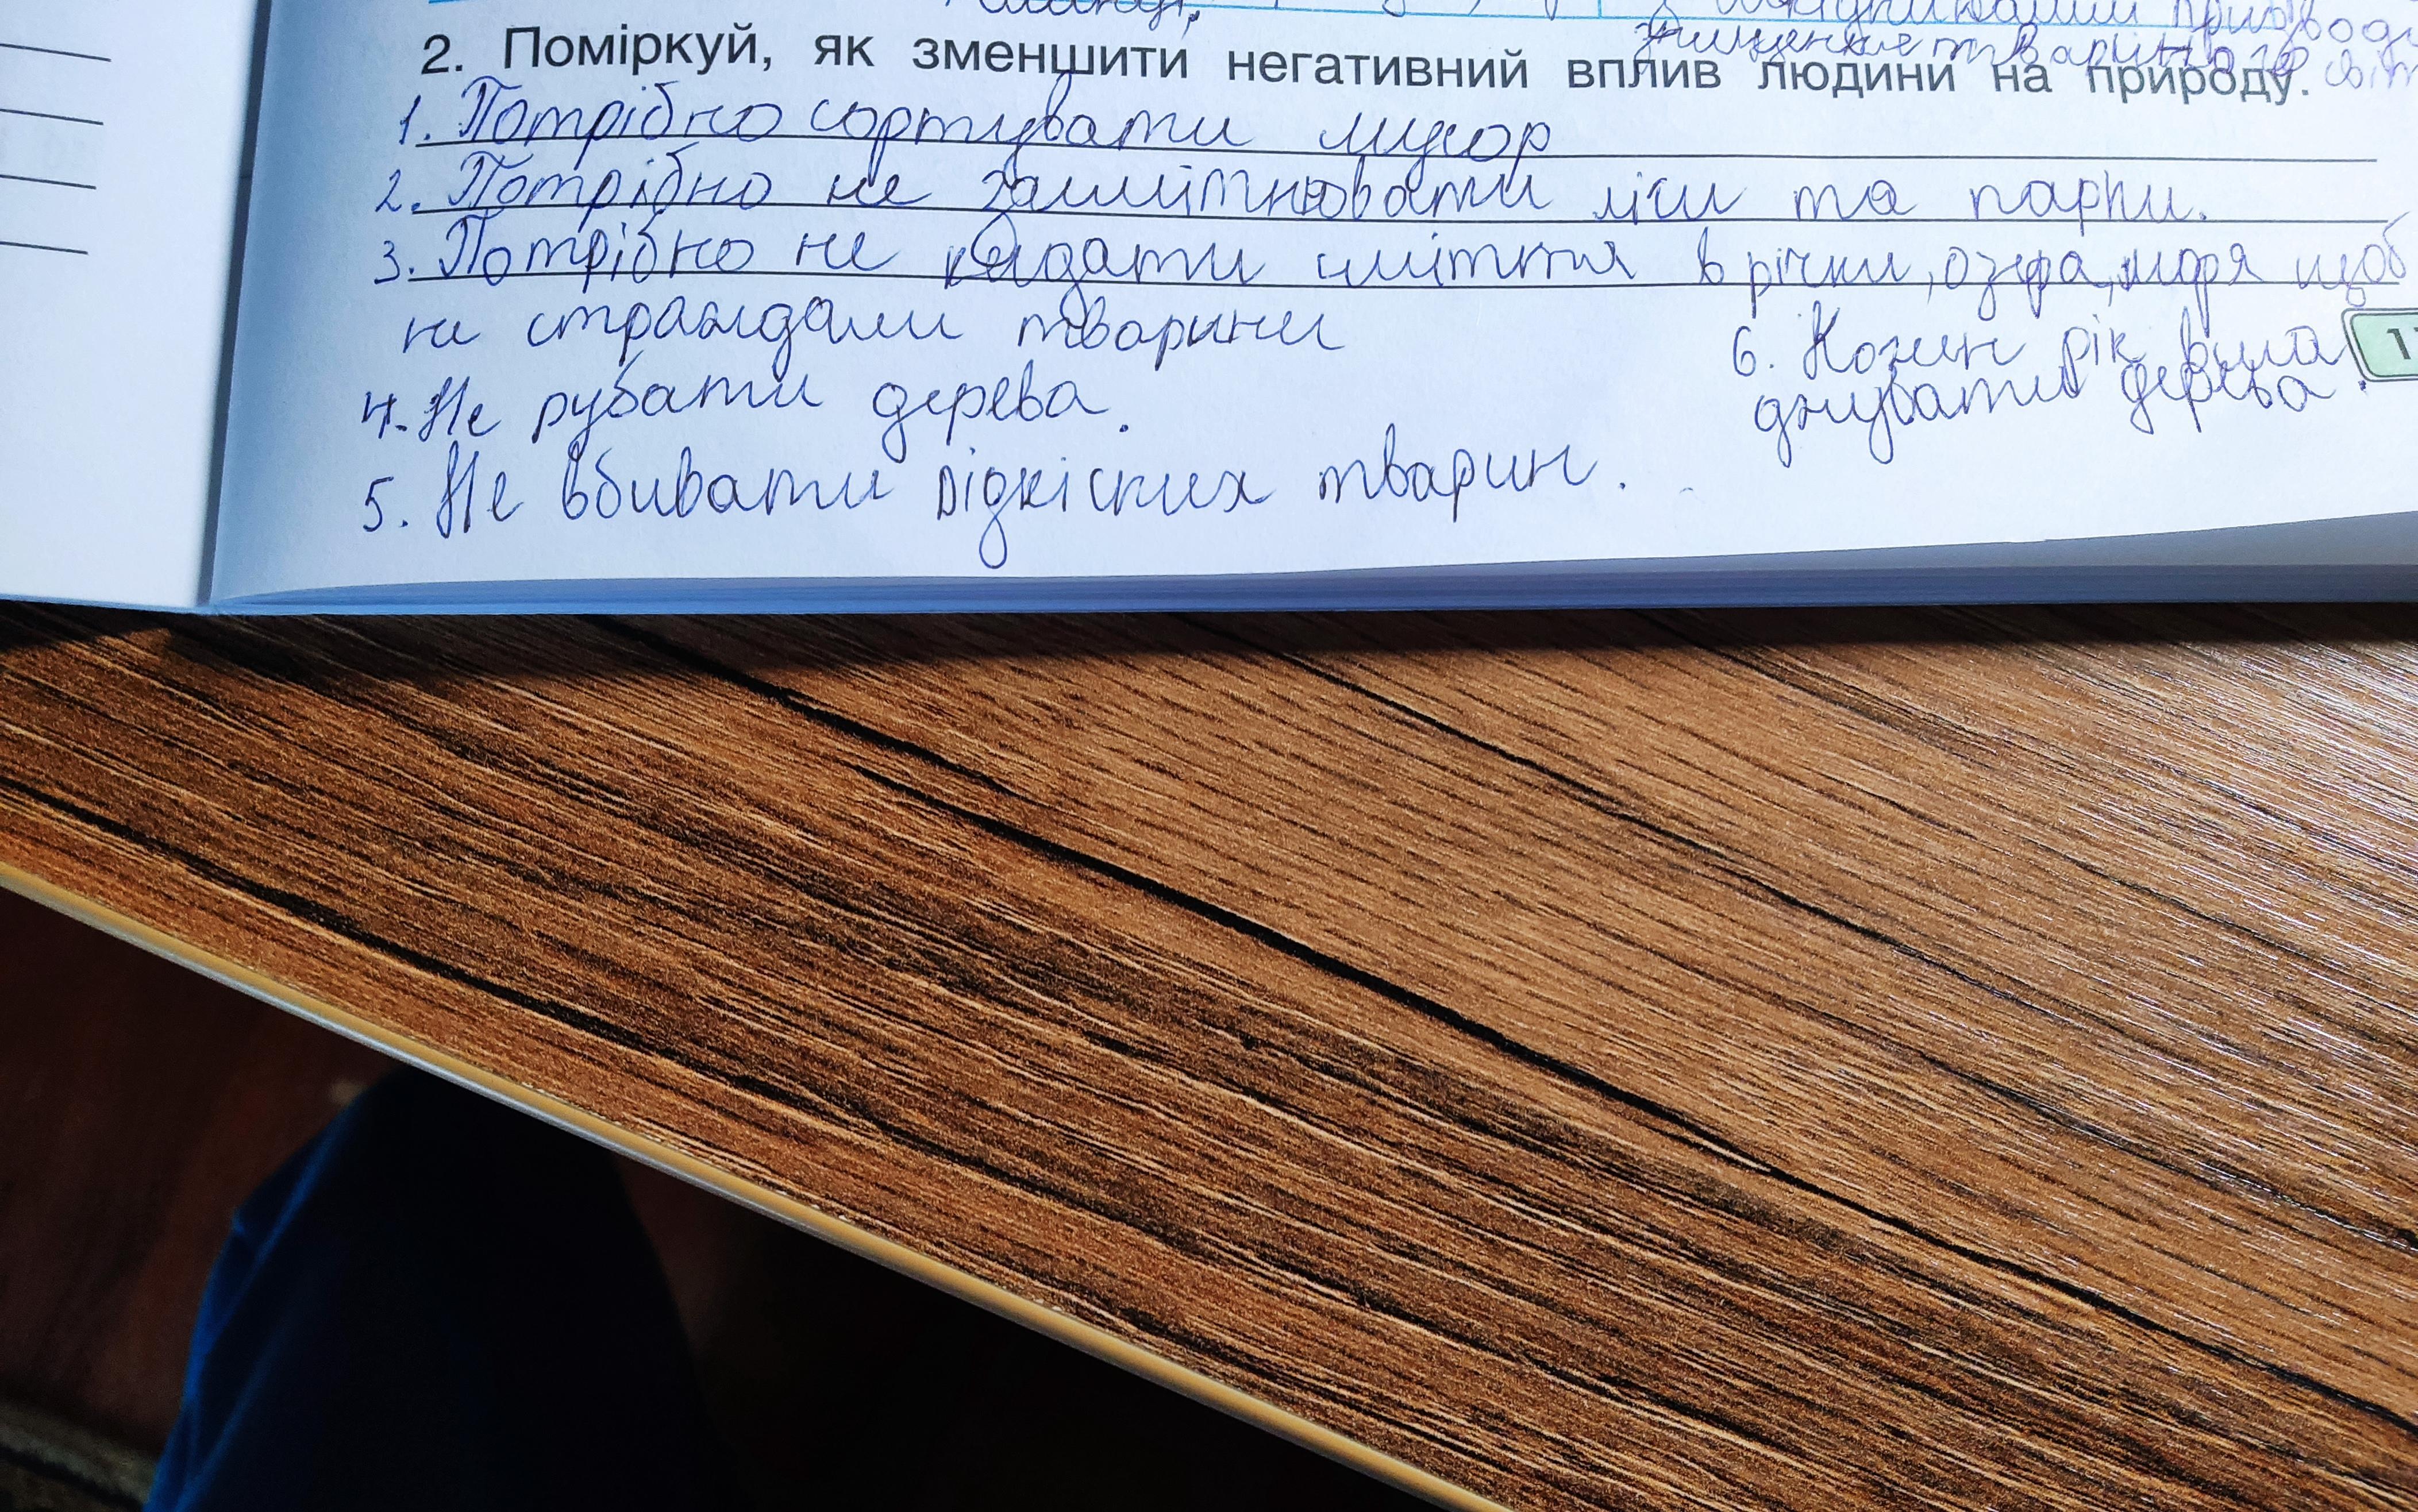 призводи
знищення тваринного світ
2. Поміркуй, як зменшити негативний вплив людини на природу.
1. Потрібно сортувати мусор
2. Потрібно не засмітнювати ліси та парки.
3. Потрібно не кидати сміття в річки, озера, моря щоб
не страждали тварини
4. Не рубати дерева.
5. Не вбивати рідкісних тварин.
6. Кожен рік виса
джувати дерева.